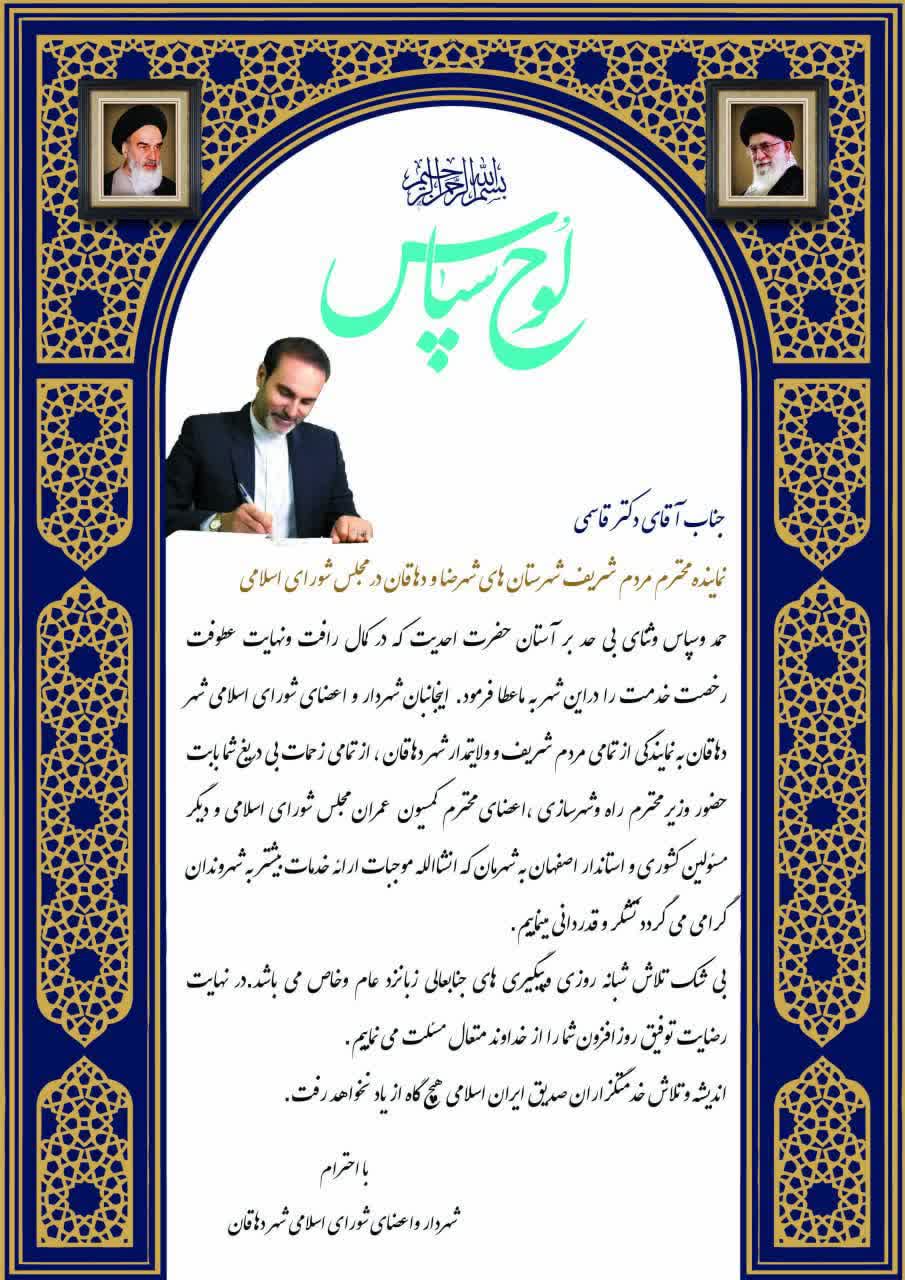 بسم الله الرحمن الرحیم
لوح سپاس
جناب آقای دکتر قاسمی
نماینده محترم مردم شریف شهرستان های شهرضا و دهاقان در مجلس شورای اسلامی
حمد وسپاس وثنای بی حد بر آستان حضرت احدیت که در کمال رافت ونهایت عطوفت
رخصت خدمت را دراین شهر به ماعطا فرمود. اینجانبان شهردار و اعضای شورای اسلامی شهر
دهاقان به نمایندگی از تمامی مردم شریف و ولایتمدار شهر دهاقان ، از تمامی زحمات بی دریغ شما بابت
حضور وزیر محترم راه وشهرسازی ،اعضای محترم کمسیون عمران مجلس شورای اسلامی و دیگر
مسئولین کشوری و استاندار اصفهان به شهرمان که انشاالله موجبات ارائه خدمات بیشتر به شهروندان
گرامی می گردد تشکر و قدردانی مینماییم .
بی شک تلاش شبانه روزی وپیگیری های جنابعالی زبانزد عام وخاص می باشد.در نهایت
رضایت توفیق روزافزون شما را از خداوند متعال مسئلت می نماییم .
اندیشه و تلاش خدمتگزاران صدیق ایران اسلامی هیچ گاه از یاد نخواهد رفت.
با احترام
شهردار واعضای شورای اسلامی شهر دهاقان